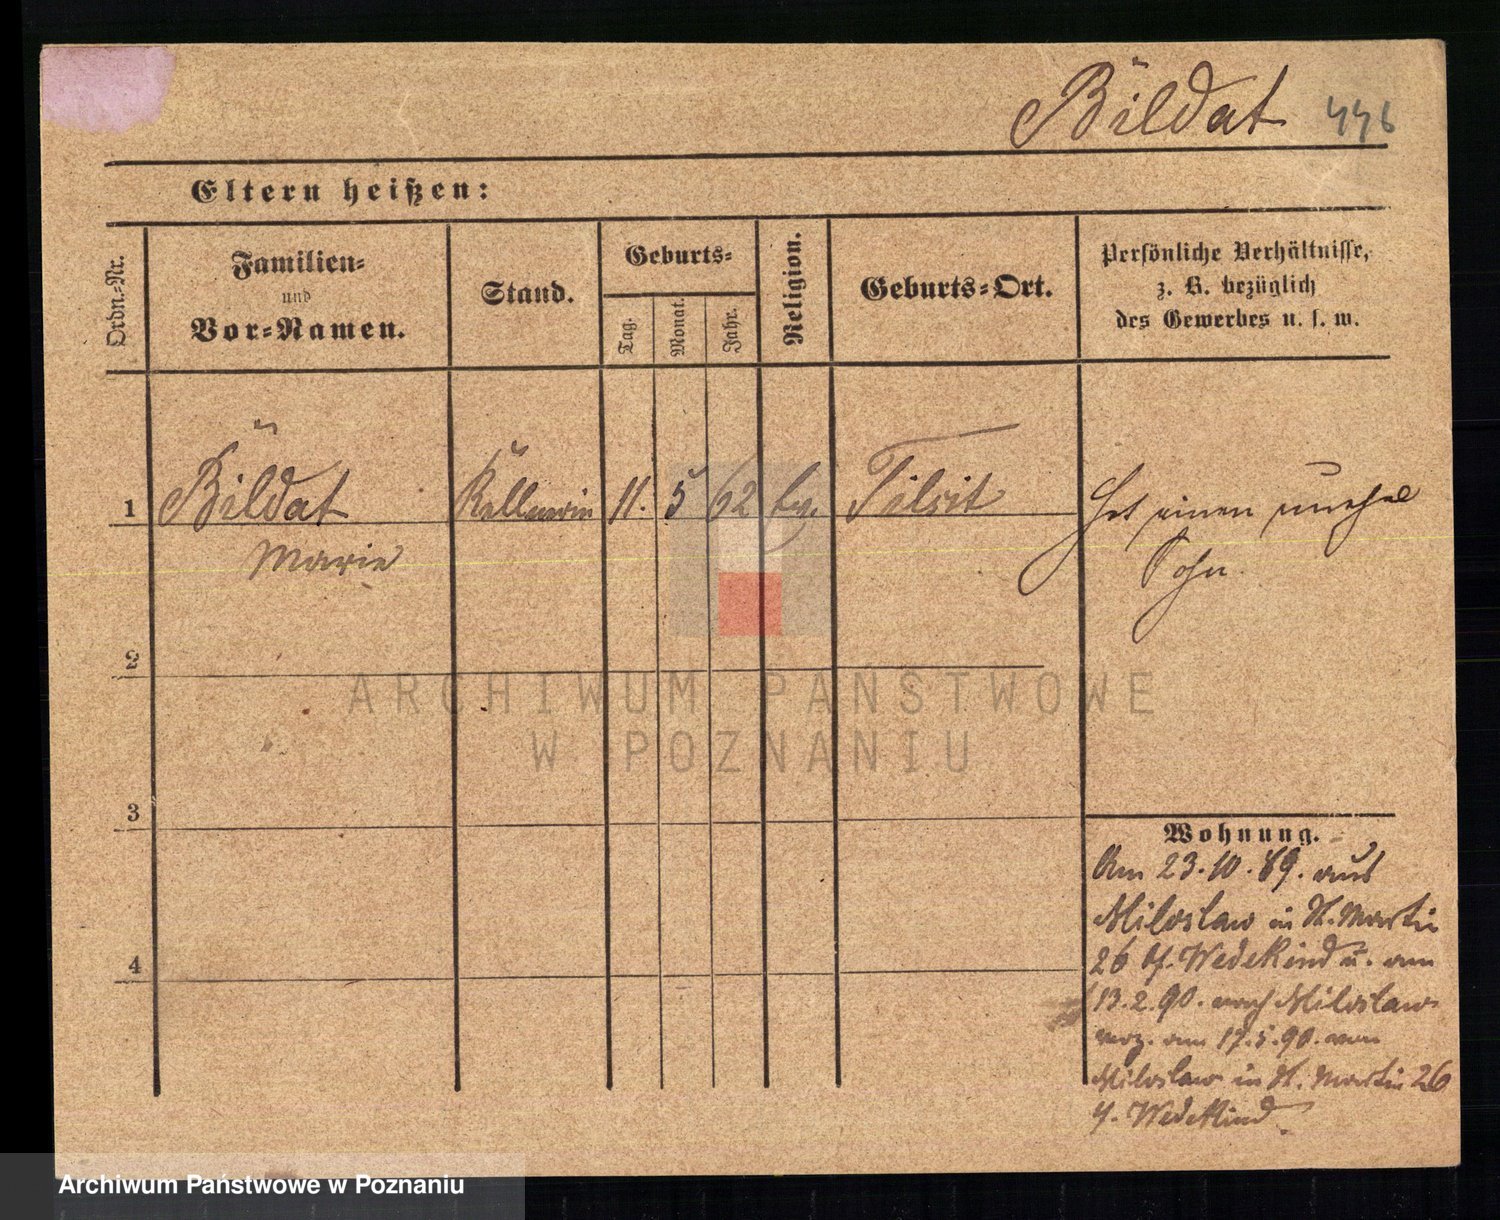 Bildat 446
Eltern heißen:
Ordn.-Nr.
Familien-
und
Vor-Namen.
Stand.
Geburts-
Tag.
Monat.
Jahr.
Religion.
Geburts-Ort.
Persönliche Verhältnisse,
z. B. bezüglich
des Gewerbes u. s. w.
1 Bildat Kellnerin 11. 5 62 ev. Tilsit Hat einen unehel
Marie Sohn.
2
3
4
Wohnung.
Am 23.10.89. aus
Miloslaw in St. Martin
26 b/. Wedekind u. am
13.2.90. nach Miloslaw
verz. am 17.5.90. von
Miloslaw in St. Martin 26
b/. Wedekind
ARCHIWUM PAŃSTWOWE
W POZNANIU
Archiwum Państwowe w Poznaniu